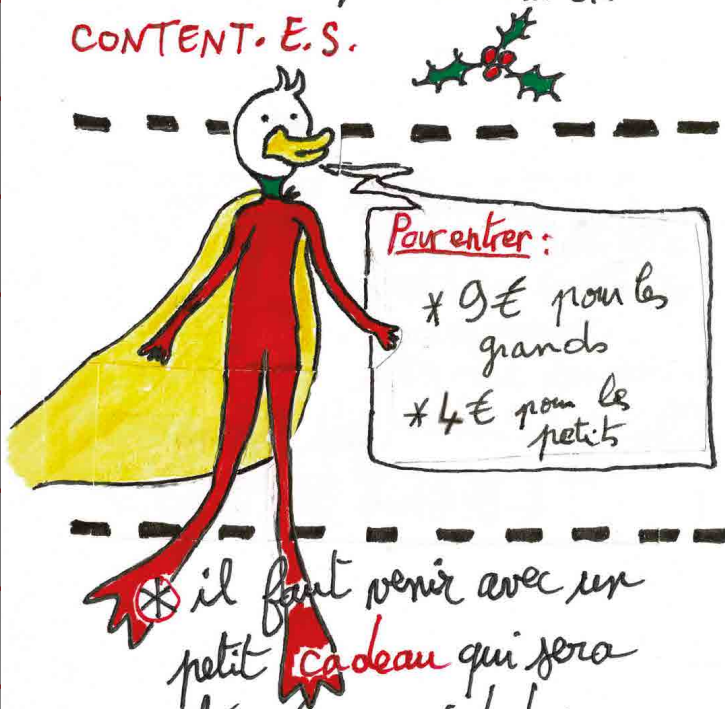 CONTENT. E.S.
Pour entrer :
* 9€ pour les
grands
* 4€ pour les
petits
* il faut venir avec un
petit cadeau qui sera